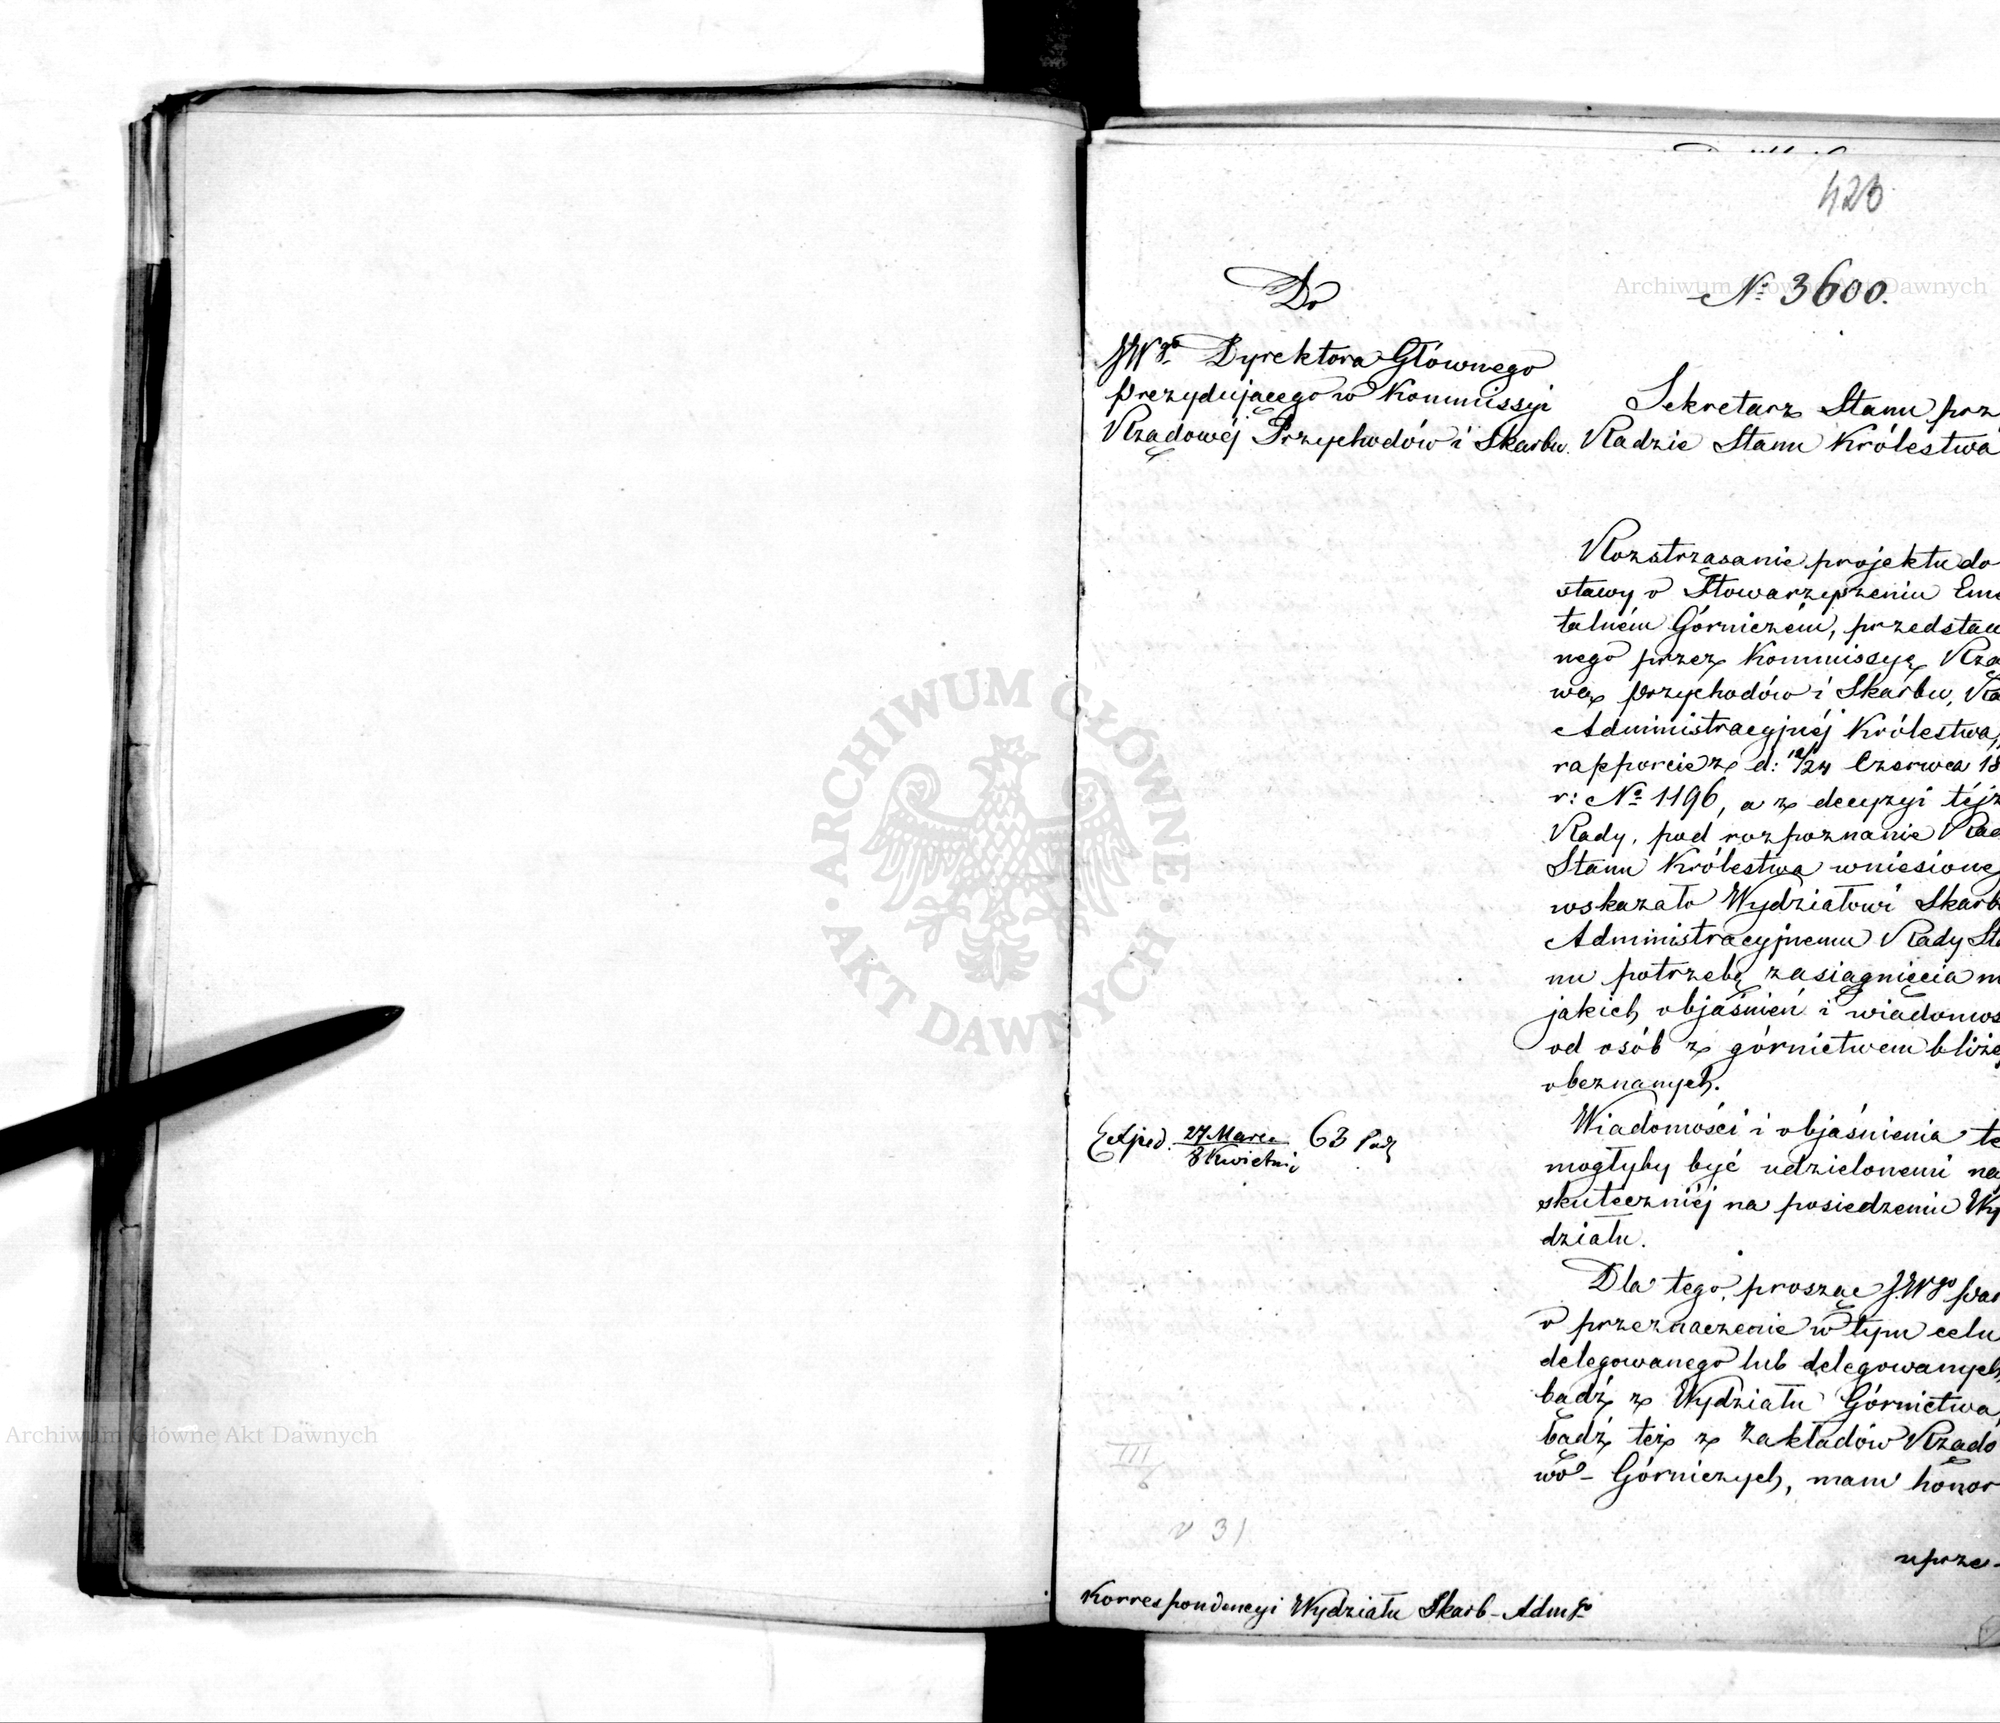 423
Do
№ 3600.
JWgo Dyrektora Głównego
Prezydującego w Kommissyi
Rządowéj Przychodów i Skarbu.
Sekretarz Stanu prz
Radzie Stanu Królestwa
Roztrząsanie projektu do
stawy o Stowarzyszeniu Eme
talném Górniczém, przedstaw
nego przez Kommissyę Rzą
wą Przychodów i Skarbu, Ra
Administracyjnéj Królestwa,
rapporcie z d: 12/24 Czerwca 18
r: № 1196, a z decyzyi téjż
Rady, pod rozpoznanie Rad
Stanu Królestwa wniesione
wskazało Wydziałowi Skarb
Administracyjnemu Rady Sta
nu potrzebę zasiągnięcia n
jakich objaśnień i wiadomoś
od osób z górnictwem bliżej
obeznanych.
Wiadomości i objaśnienia te
mogłyby być udzielonemi naj
skuteczniéj na posiedzeniu Wy
działu.
Exped. 27 Marca 63
8 Kwietnia
Dla tego, prosząc JWgo Pan
o przeznaczenie w tym celu
delegowanego lub delegowanych,
bądź z Wydziału Górnictwa,
bądź też z Zakładów Rządo
wo-Górniczych, mam honor
uprze-
III
6
v 31
Korrespondencyi Wydziału Skarb-Admgo
Archiwum Główne Akt Dawnych
ARCHIWUM GŁÓWNE · AKT DAWNYCH ·
Archiwum Główne Akt Dawnych